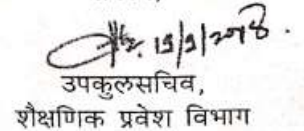 19/9/2018.
उपकुलसचिव,
शैक्षणिक प्रवेश विभाग